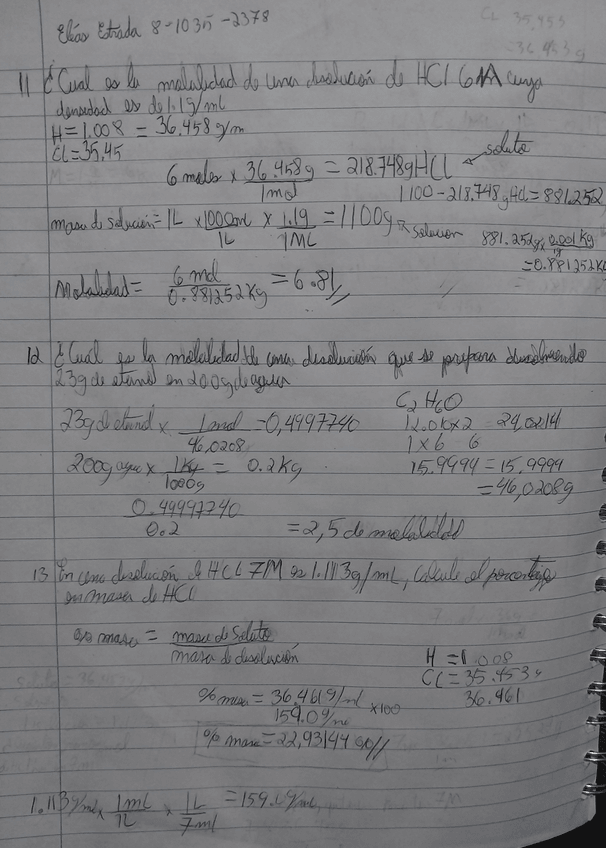 Elías Estrada 8-1035-2378
CL 35.453
36.453g
11 ¿Cual es la molalidad de una disolución de HCl 6M cuya
densidad es de 1.1g/ml
H=1.008 = 36.458 g/m
CL=35.45
6 moles x 36.458g / 1mol = 218.748gHCL ← soluto
1100-218.748gHCL=881.252
masa de solución= 1L x 1000ml / 1L x 1.1g / 1ML = 1100g ← solucion
881.252g x 0.001Kg / 1g
=0.881252Kg
Molalidad= 6 mol / 0.881252Kg = 6.81
12 ¿Cual es la molalidad de una disolución que se prepara disolviendo
23g de etanol en 200g de agua
C2H6O
23g de etanol x 1mol / 46,0208 = 0,4997740
12.01x2 = 24,0214
1x6 6
200g agua x 1Kg / 1000g = 0.2Kg
15.9994 = 15,9994
=46,0208g
0.49997740 / 0.2 = 2,5 de molalidad
13 En una disolución de HCL 7M es 1.1113g/mL, Calcule el porcentaje
en masa de HCl
% masa = masa de soluto / masa de disolución
H = 1.008
CL = 35.453g
36.461
% masa = 36.461g/ml / 159.0g/ml x100
% masa = 22,93144 %
1.113g/ml x 1ml / 1L x 1L / 7ml = 159.0g/ml